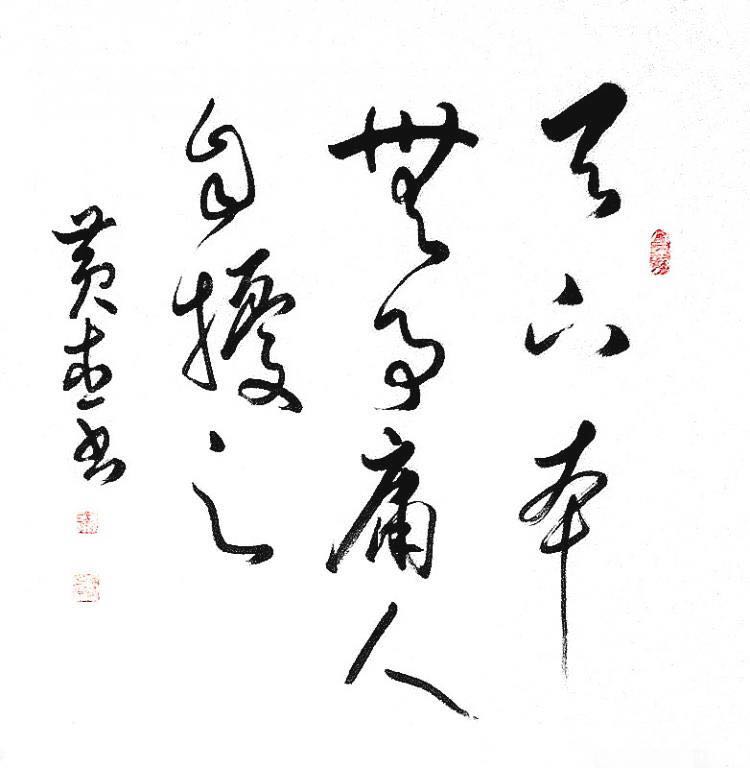 天下本
無事庸人
自擾之
黄杰书